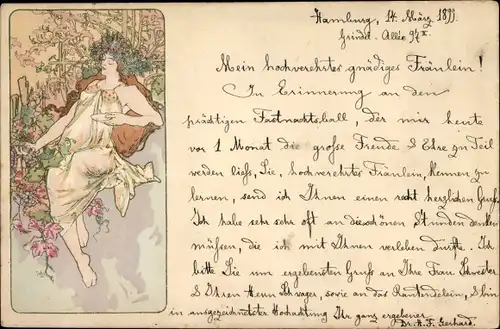 Hamburg, 14. März 1899.
Grindel-Allée 94 II.
Mein hochverehrtes gnädiges Fräulein!
In Erinnerung an den
prächtigen Fastnachtsball, der mir heute
vor 1 Monat die große Freude & Ehre zu Teil
werden ließ, Sie, hochverehrtes Fräulein, kennen zu
lernen, send ich Ihnen einen recht herzlichen Gruß.
Ich habe sehr sehr oft an die schönen Stunden denken
müssen, die ich mit Ihnen verleben durfte. Ich
bitte Sie um ergebensten Gruß an Ihre Frau Schwester
& Ihren Herrn Schwager, sowie an das Rautendelein, & bin
in ausgezeichnetster Hochachtung Ihr ganz ergebener
Dr. A. F. Gerhard.